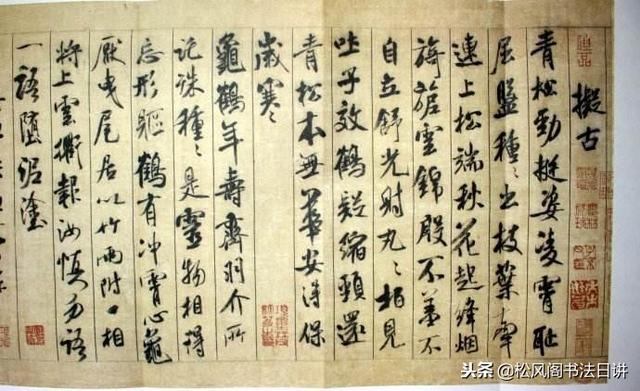 擬古
青松勁挺姿凌霄恥
屈盤種〻出枝葉牽
連上松端秋花起絳烟
旖旎雲錦殷不羞不
自立舒光射丸〻柏見
吐子效鶴疑縮頸還
青松本無華安得保
歲寒
龜鶴年壽齊羽介所
託殊種〻是靈物相得
忘形軀鶴有沖霄心龜
厭曳尾居以竹兩附口相
將上雲衢報汝慎勿語
一語墮泥塗
头条 @松风阁书法日讲